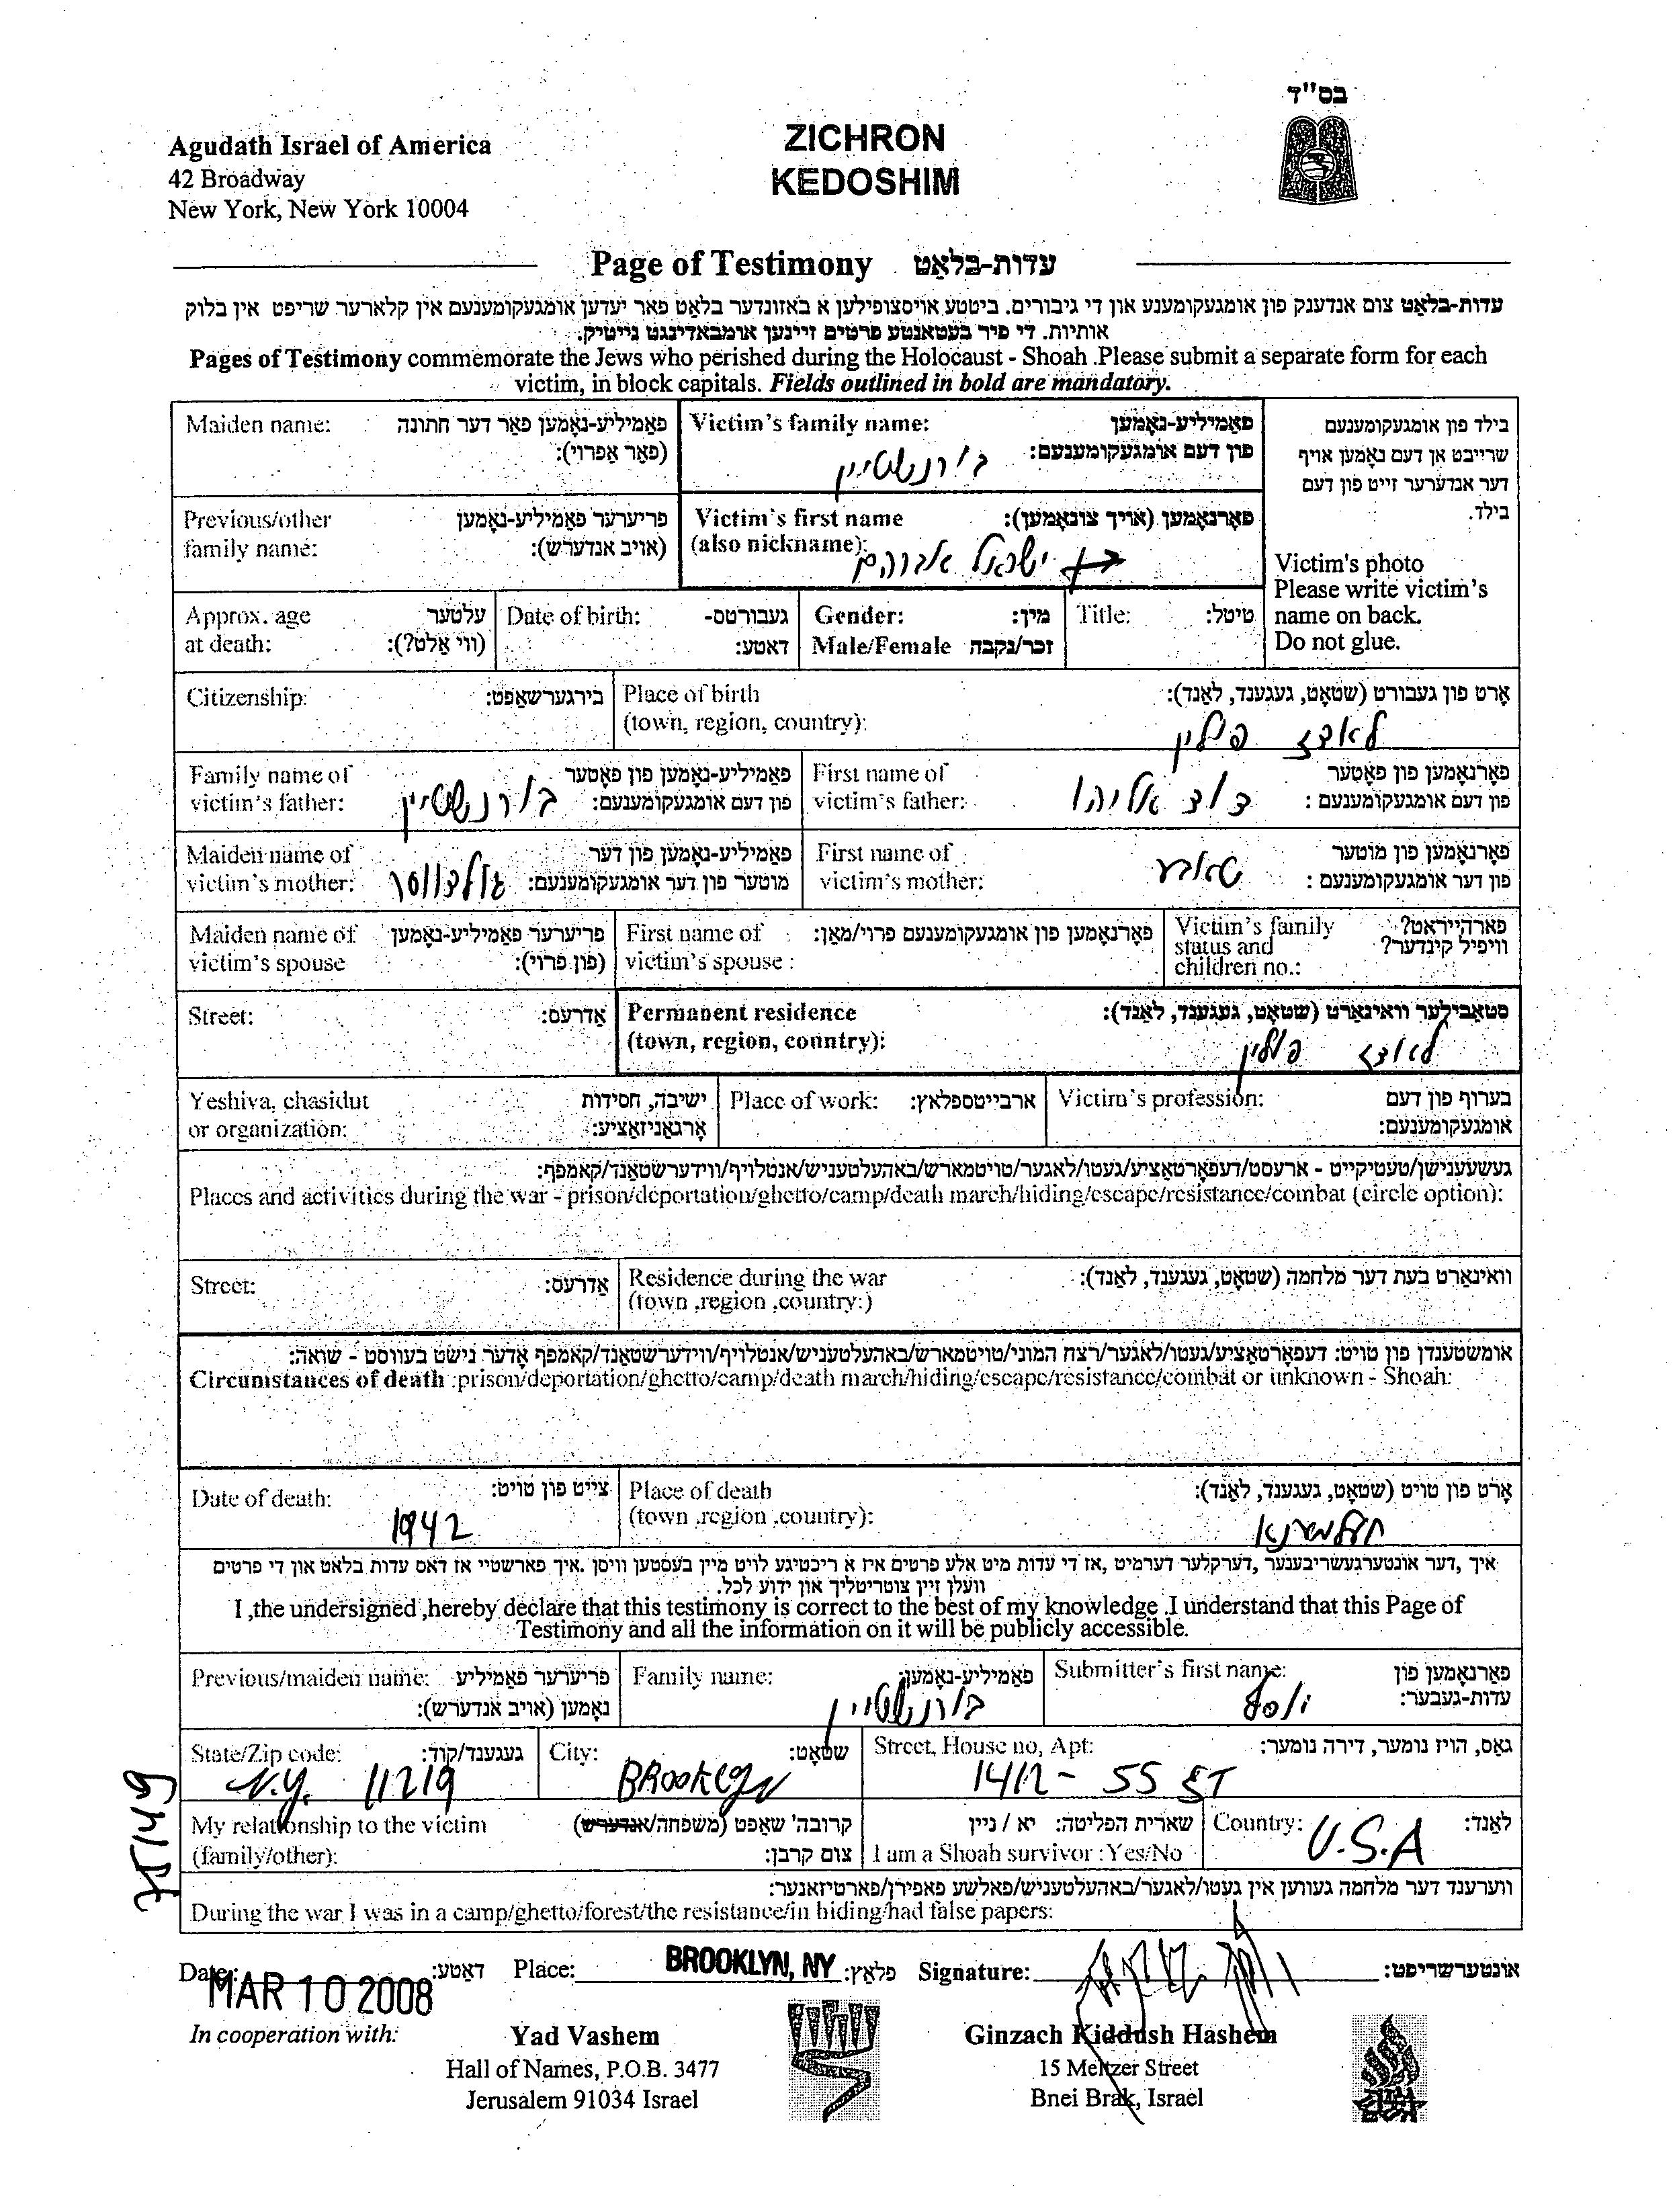 בס"ד
Agudath Israel of America
42 Broadway
New York, New York 10004
ZICHRON
KEDOSHIM
Page of Testimony עדות-בלאַט
עדות-בלאַט צום אנדענק פון אומגעקומענע און די גיבורים. ביטטע אויסצופילען א באזונדער בלאט פאר יעדען אומגעקומענעם אין קלארער שריפט אין בלוק
אותיות. די פיר בעטאנטע פרטים זיינען אומבאדינגט נייטיק.
Pages of Testimony commemorate the Jews who perished during the Holocaust - Shoah .Please submit a separate form for each
victim, in block capitals. Fields outlined in bold are mandatory.
Maiden name: פאַמיליע-נאָמען פאַר דער חתונה
(פאַר אַפרוי):
Victim's family name: פאַמיליע-נאָמען
פון דעם אומגעקומענעם:
בורנשטיין
בילד פון אומגעקומענעם
שרייבט אן דעם נאָמען אויף
דער אנדערער זייט פון דעם
בילד.
Victim's photo
Please write victim's
name on back.
Do not glue.
Previous/other פריערער פאַמיליע-נאָמען
family name: (אויב אנדערש):
Victim's first name פאָרנאָמען (אויך צונאָמען):
(also nickname):
ישראל אברהם
Approx. age עלטער
at death: (ווי אַלט?):
Date of birth: געבורטס-
דאטע:
Gender: מין:
Male/Female זכר/נקבה
Title: טיטל:
Citizenship: בירגערשאַפט:
Place of birth אָרט פון געבורט (שטאָט, געגענד, לאַנד):
(town, region, country):
לאדז פולין
Family name of פאַמיליע-נאָמען פון פאָטער
victim's father: פון דעם אומגעקומענעם:
בורנשטיין
First name of פאָרנאָמען פון פאָטער
victim's father: פון דעם אומגעקומענעם :
דוד אליהו
Maiden name of פאַמיליע-נאָמען פון דער
victim's mother: מוטער פון דער אומגעקומענעם:
גולדווסר
First name of פאָרנאָמען פון מוטער
victim's mother: פון דער אומגעקומענעם :
Maiden name of פריערער פאַמיליע-נאָמען
victim's spouse (פון פרוי):
First name of פאָרנאָמען פון אומגעקומענעם פרוי/מאַן:
victim's spouse :
Victim's family פארהייראט?
status and וויפיל קינדער?
children no.:
Street: אַדרעס:
Permanent residence סטאַבילער וואוינאָרט (שטאָט, געגענד, לאַנד):
(town, region, country):
לאדז פולין
Yeshiva, chasidut ישיבה, חסידות
or organization: אָרגאַניזאַציע:
Place of work: ארבייטספלאץ:
Victim's profession: בערוף פון דעם
אומגעקומענעם:
געשעענישן/טעטיקייט - ארעסט/דעפאָרטאַציע/געטו/לאגער/טויטמארש/באהעלטעניש/אנטלויף/ווידערשטאַנד/קאמפף:
Places and activities during the war - prison/deportation/ghetto/camp/death march/hiding/escape/resistance/combat (circle option):
Street: אַדרעס:
Residence during the war וואוינאָרט בעת דער מלחמה (שטאָט, געגענד, לאַנד):
(town ,region ,country:)
אומשטענדן פון טויט: דעפאָרטאַציע/געטו/לאגער/רצח המוני/טויטמארש/באהעלטעניש/אנטלויף/ווידערשטאנד/קאמפף אָדער נישט בעוווסט - שואה:
Circumstances of death :prison/deportation/ghetto/camp/death march/hiding/escape/resistance/combat or unknown - Shoah:
Date of death: צייט פון טויט:
1942
Place of death אָרט פון טויט (שטאָט, געגענד, לאַנד):
(town ,region ,country):
חעלמנא
איך ,דער אונטערגעשריבענער ,דערקלער דערמיט ,אז די עדות מיט אלע פרטים איז א ריכטיגע לויט מיין בעסטען וויסן .איך פארשטיי אז דאס עדות בלאט און די פרטים
וועלן זיין צוטריטליך און ידוע לכל.
I ,the undersigned ,hereby declare that this testimony is correct to the best of my knowledge .I understand that this Page of
Testimony and all the information on it will be publicly accessible.
Previous/maiden name: פריערער פאַמיליע
נאָמען (אויב אנדערש):
Family name: פאַמיליע-נאָמען:
בורנשטיין
Submitter's first name: פאָרנאָמען פון
עדות-געבער:
יוסף
State/Zip code: געגענד/קוד:
N.Y. 11219
City: שטאָט:
BROOKLYN
Street, House no, Apt: גאַס, הויז נומער, דירה נומער:
1412 - 55 ST
My relationship to the victim קרובה'שאפט (משפחה/אנדערש)
(family/other): צום קרבן:
שארית הפליטה: יא / ניין
I am a Shoah survivor :Yes/No
Country: לאַנד:
U.S.A
ווערענד דער מלחמה געווען אין געטו/לאגער/באהעלטעניש/פאלשע פאפירן/פארטיזאנער:
During the war I was in a camp/ghetto/forest/the resistance/in hiding/had false papers:
75149
Date: MAR 10 2008 דאטע: Place: BROOKLYN, NY פלאץ: Signature: אונטערשריפט:
In cooperation with:
Yad Vashem
Hall of Names, P.O.B. 3477
Jerusalem 91034 Israel
Ginzach Kiddush Hashem
15 Meltzer Street
Bnei Brak, Israel